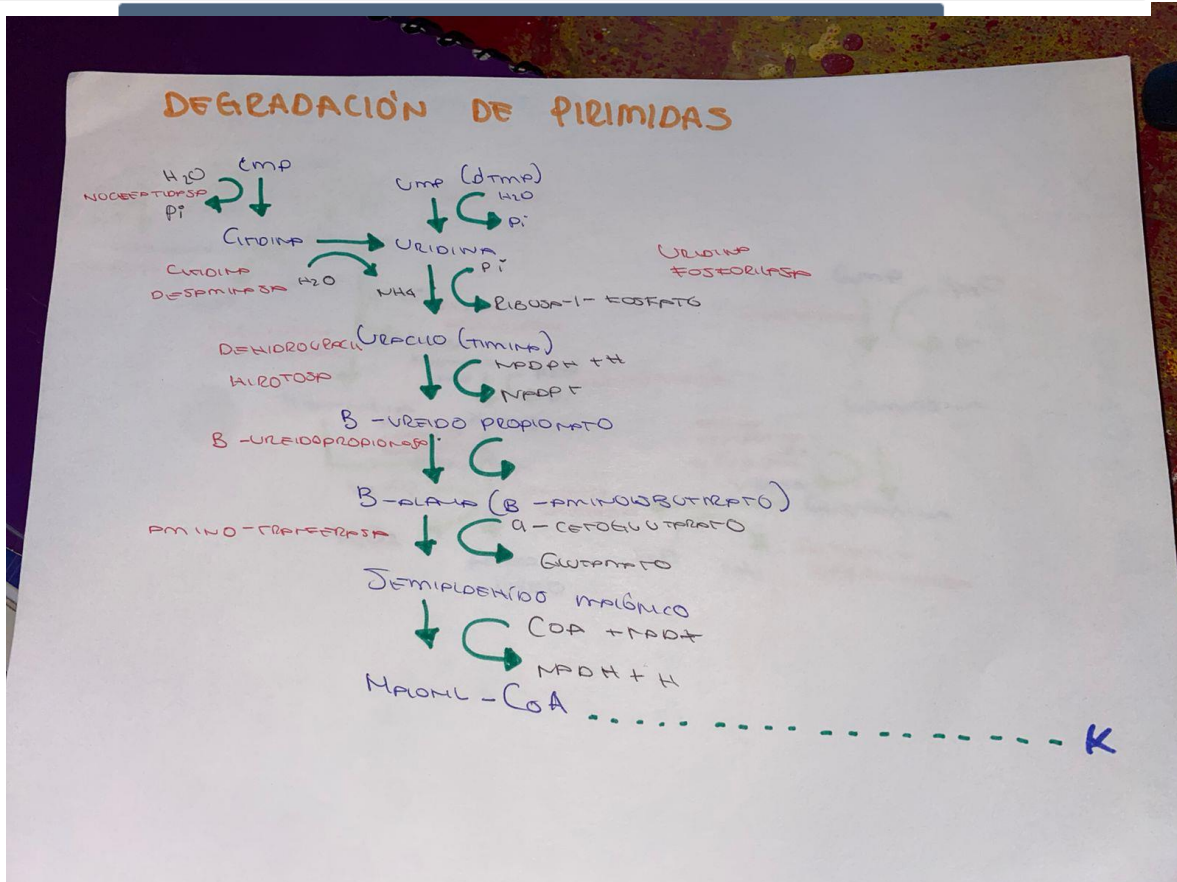 DEGRADACIÓN DE PIRIMIDAS
H2O CMP
UMP (dTMP)
NOCLEPTIDASA
H2O
Pi
Pi
CITIDINA
URIDINA
URIDINA
FOSFORILASA
Pi
CITIDINA
DESAMINASA
H2O
NH4
RIBOSA-1-FOSFATO
DEHIDROURACIL
URACILO (TIMINA)
NADPH + H
HIROTOSA
NADP+
B-UREIDO PROPIONATO
B-UREIDOPROPIONASA
B-ALANA (B-AMINOISBUTIRATO)
AMINO-TRANFERASA
α-CETOGLUTARATO
GLUTAMATO
SEMIALDEHÍDO MALÓNICO
COA + NAD+
NADH + H
MALONIL-COA
K